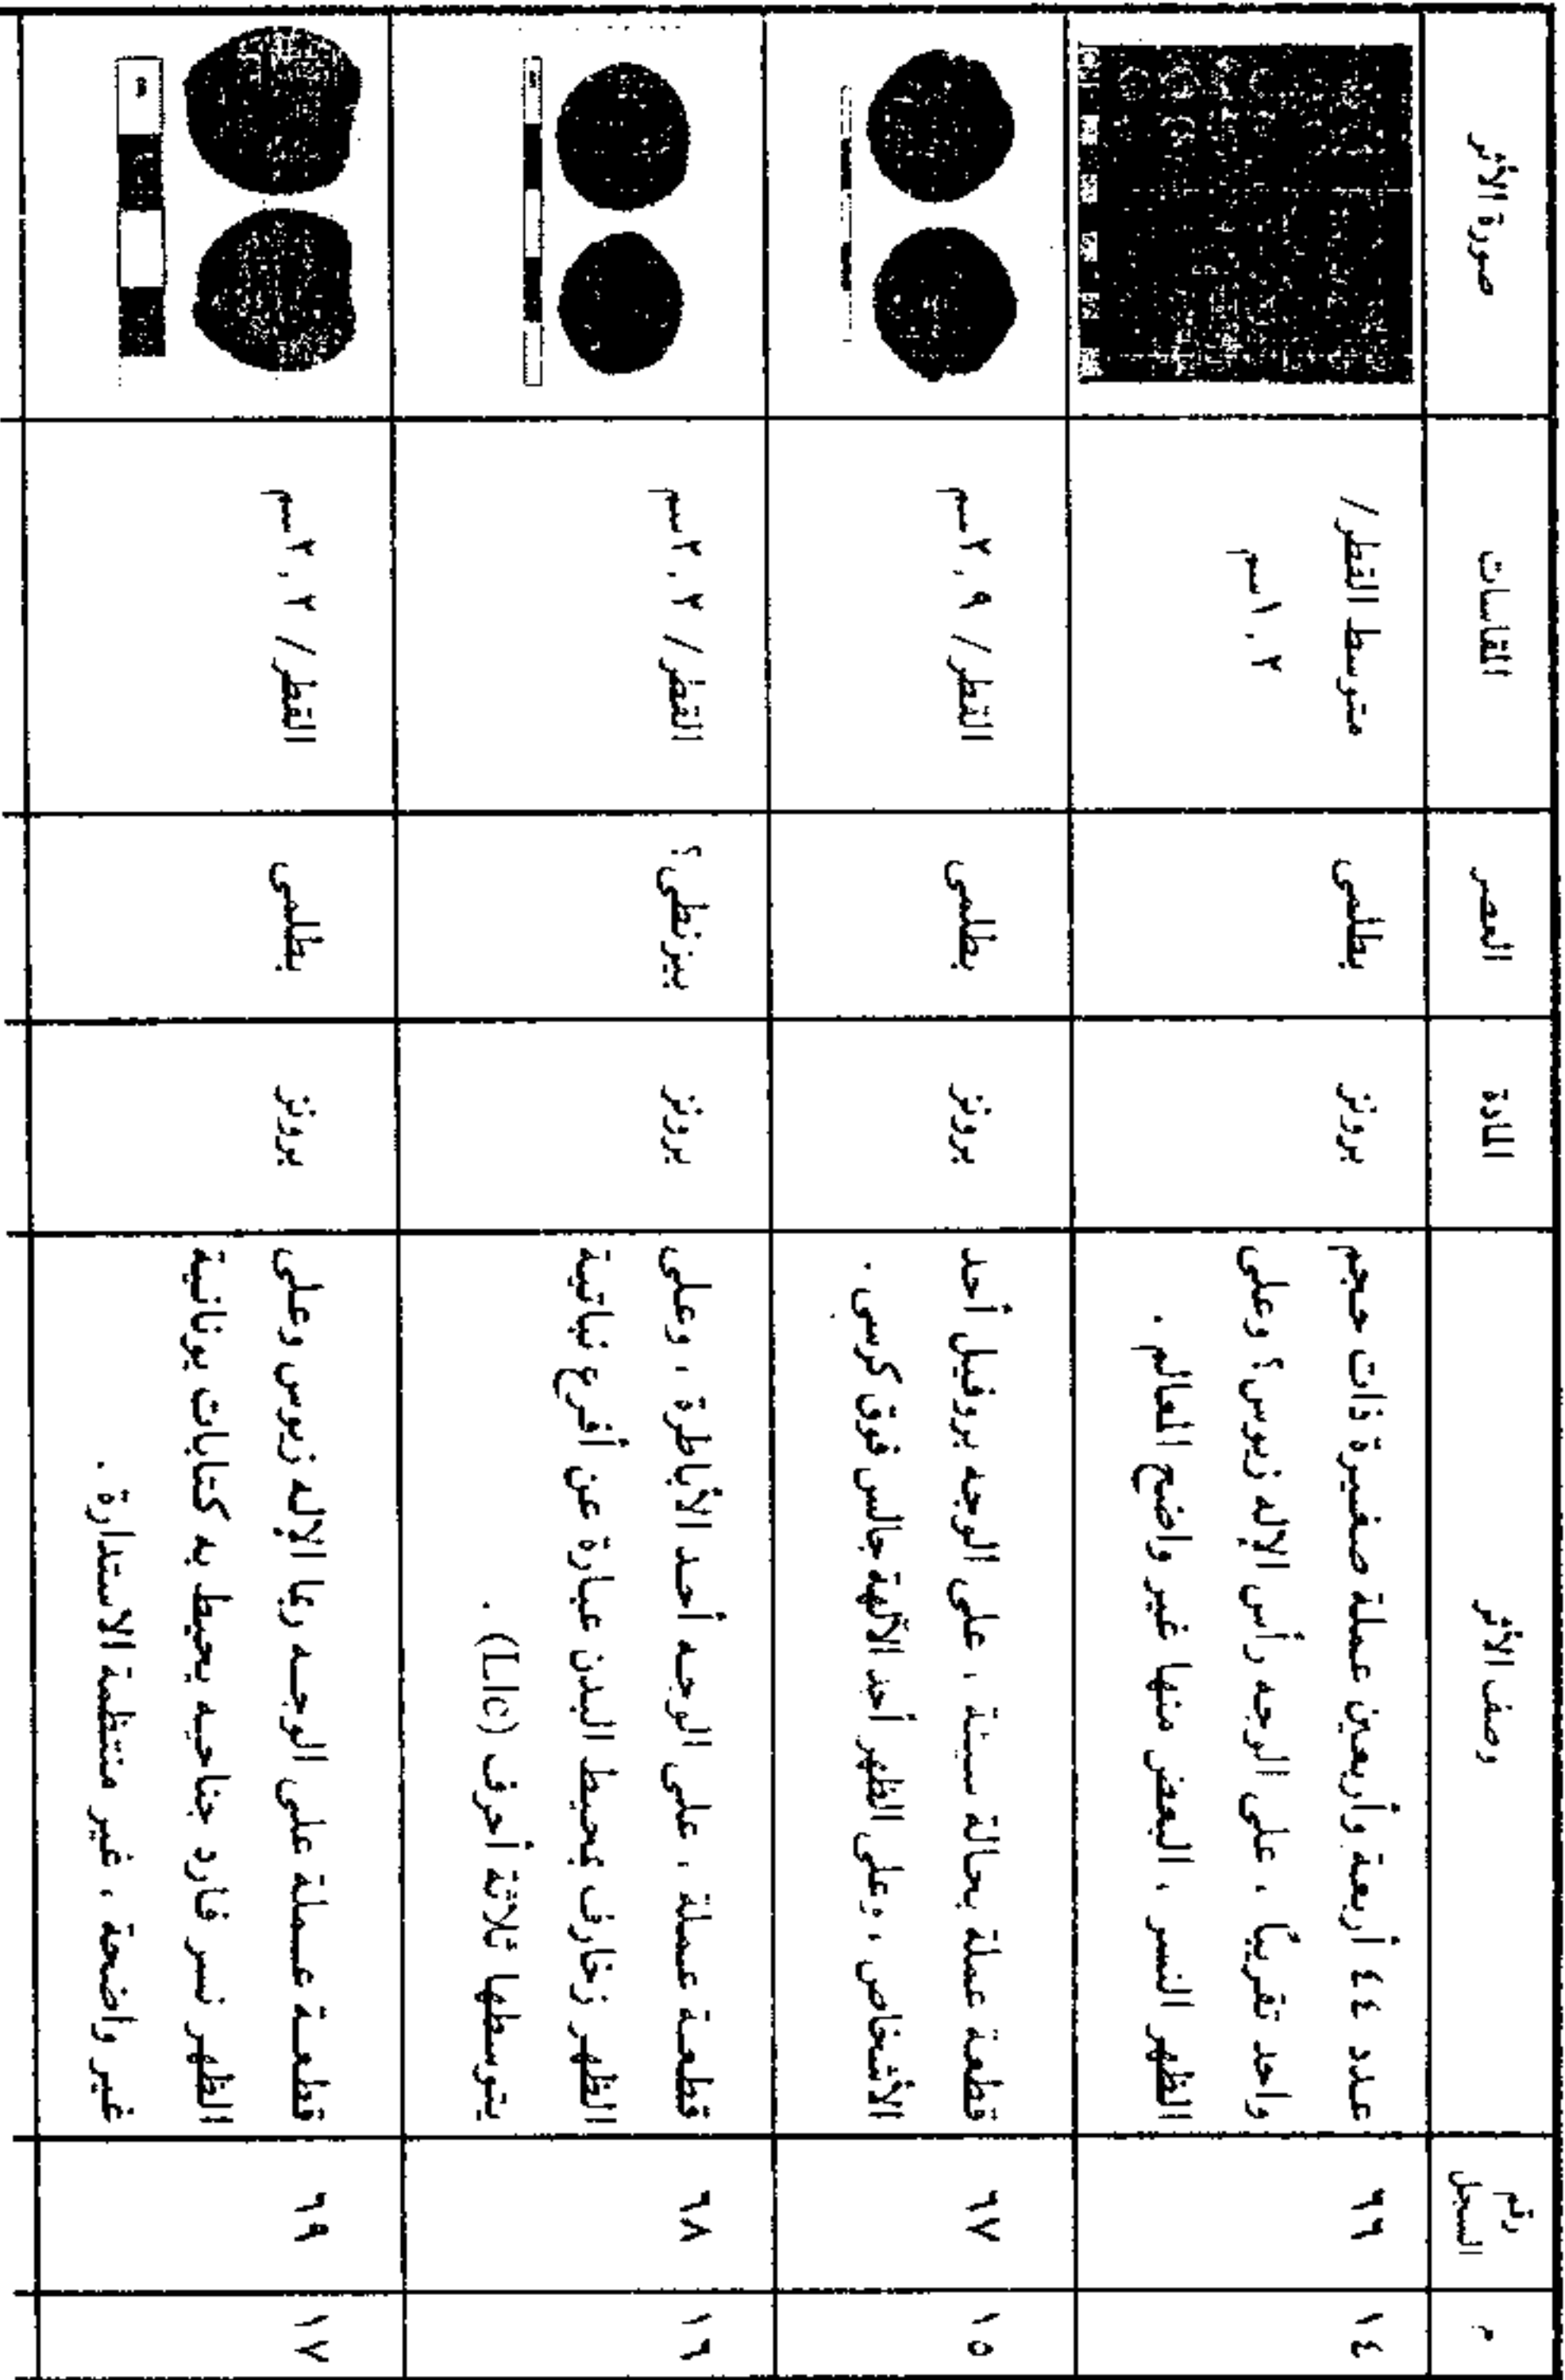 م
رقم
السجل
وصف الأثر
المادة
العصر
المقاسات
صورة الأثر
١٤
٦٦
عدد ٤٤ أربعة وأربعين عملة صغيرة ذات حجم
واحد تقريبًا ، على الوجه رأس الإله زيوس؟ وعلى
الظهر النسر ، البعض منها غير واضح المعالم .
برونز
بطلمى
متوسط القطر/
١,٢سم
١٥
٦٧
قطعة عملة بحالة سيئة ، على الوجه بروفيل أحد
الأشخاص ، وعلى الظهر أحد الآلهة جالس فوق كرسى .
برونز
بطلمى
القطر/ ٢,٩سم
١٦
٦٨
قطعة عملة ، على الوجه أحد الأباطرة ، وعلى
الظهر زخارف بمحيط البدن عبارة عن أفرع نباتية
يتوسطها ثلاثة أحرف (LIc) .
برونز
بيزنطى؟
القطر/ ٢,٢سم
١٧
٦٩
قطعة عملة على الوجه ربما الإله زيوس وعلى
الظهر نسر فارد جناحيه يحيط به كتابات يونانية
غير واضحة ، غير منتظمة الاستدارة .
برونز
بطلمى
القطر/ ٢,٢سم